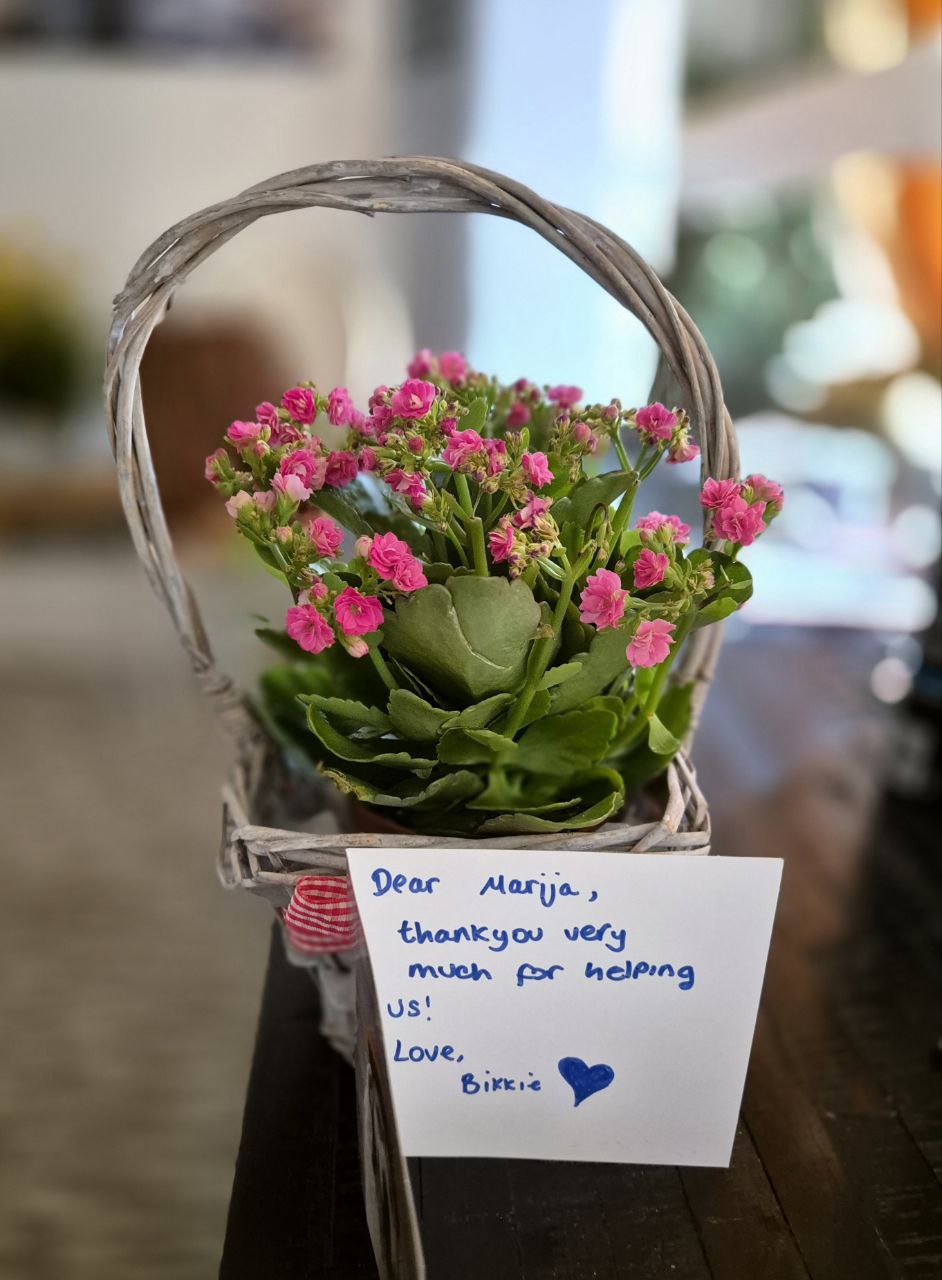 Dear Marija,
thankyou very
much for helping
us!
Love,
Bikkie